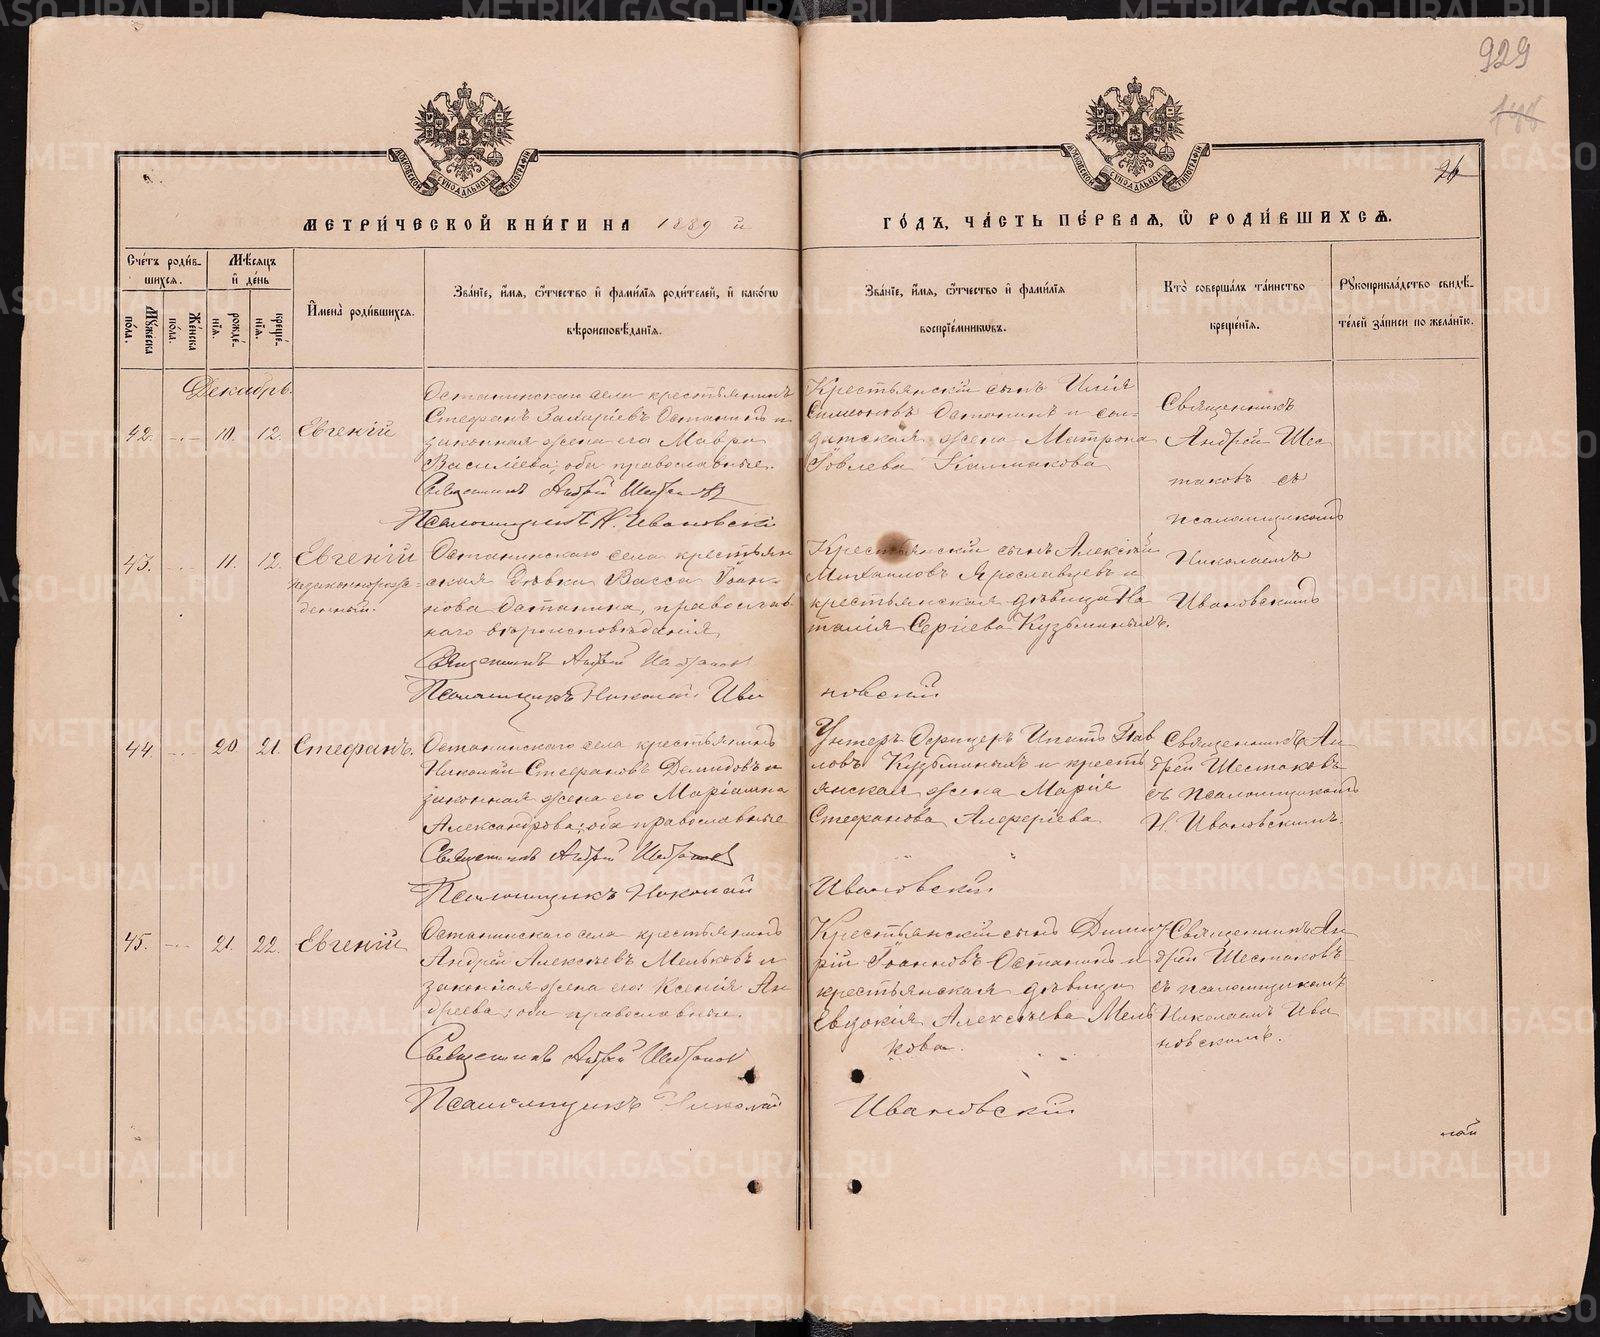 929
26
МОСКОВСКОЙ СѴНОДАЛЬНОЙ ТИПОГРАФІИ
МОСКОВСКОЙ СѴНОДАЛЬНОЙ ТИПОГРАФІИ
МЕТРИ́ЧЕСКОЙ КНИ́ГИ НА 1889 й ГО́ДЪ, ЧА́СТЬ ПЕ́РВАЯ, Ѡ РОДИ́ВШИХСѦ.
Сче́тъ роди́в-
шихсѧ.
Мꙋ́жеска по́ла.
Же́нска по́ла.
Мѣ́сяцъ
и҆ де́нь
рожде́-
нїѧ.
креще́-
нїѧ.
И҆мена̀ роди́вшихсѧ.
Зва́нїе, и҆́мѧ, ѻ҆́тчество и҆ фами́лїѧ роди́телей, и҆ како́гѡ
вѣроисповѣ́данїѧ.
Зва́нїе, и҆́мѧ, ѻ҆́тчество и҆ фами́лїѧ
воспрїе́мникѡвъ.
Кто̀ соверша́лъ та́инство
креще́нїѧ.
Рꙋкоприкла́дство свидѣ́-
телей за́писи по жела́нїю.
Декабрь.
42. 10. 12. Евгеній
Останинскаго села крестьянинъ
Стефанъ Останинъ и
законная жена его Мавра
Василіева, оба православные.
Священникъ Андрей Шестаковъ
Псаломщикъ Н. Ивановскій
Крестьянскій сынъ Илія
Симеоновъ Останинъ и сол-
датская жена Матрона
Іовлева Колмакова
Священникъ
Андрей Шес
таковъ съ
псаломщикомъ
Николаемъ
Ивановскимъ
43. 11. 12. Евгеній
незаконнорож-
денный.
Останинскаго села крестьян
ская дѣвка Васса Іоан-
нова Останина, православ
наго вѣроисповѣданія
Священникъ Андрей Шестаковъ
Псаломщикъ Николай Ива новскій
Крестьянскій сынъ Алексій
Михаиловъ Ярославцевъ и
крестьянская дѣвица На
талія Сергіева Кузьминыхъ.
44. 20 21. Стефанъ.
Останинскаго села крестьянинъ
Николай Стефановъ Демидовъ и
законная жена его Маріамна
Александрова, оба православные
Священникъ Андрей Шестаковъ
Псаломщикъ Николай Ивановскій
Унтеръ-Офицеръ Ипатъ Пав
ловъ Кузьминыхъ и кресть
янская жена Марія
Стефанова Алферіева
Священникъ Ан
дрей Шестаковъ
съ псаломщикомъ
Н. Ивановскимъ.
45. 21. 22. Евгеній
Останинскаго села крестьянинъ
Андрей Алексѣевъ Мельковъ и
законная жена его Ксенія Ан
дреева, оба православные.
Священникъ Андрей Шестаковъ
Псаломщикъ Николай Ивановскій
Крестьянскій сынъ Дими
рій Іоанновъ Останинъ и
крестьянская дѣвица
Евдокія Алексѣева Мель
кова.
Священникъ Ан
дрей Шестаковъ
съ псаломщикомъ
Николаемъ Ива
новскимъ.
METRIKI.GASO-URAL.RU